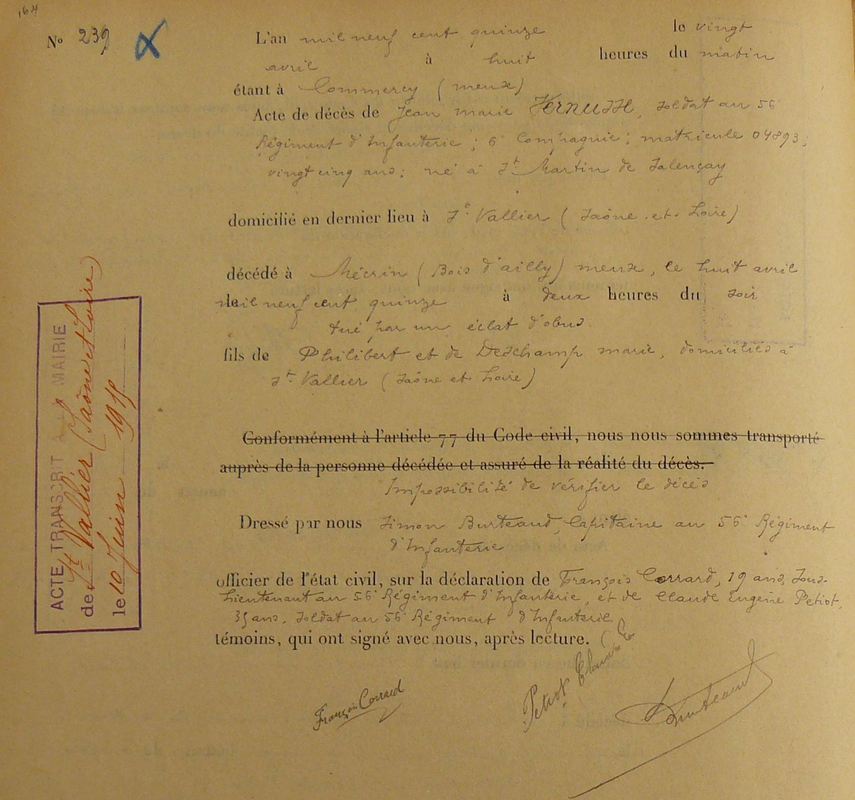 164
N° 239
L'an mil neuf cent quinze le vingt
avril à huit heures du matin
étant à Commercy (meuse)
Acte de décès de Jean marie VERNUSSE, soldat au 56
Régiment d'Infanterie; 6e Compagnie; matricule 04893;
vingt cinq ans; né à St Martin de Salençay
domicilié en dernier lieu à St Vallier (Saône-et-Loire)
décédé à Mécrin (Bois d'ailly) meuse, le huit avril
mil neuf cent quinze à deux heures du soir
tué par un éclat d'obus.
fils de Philibert et de Deschamp marie, domiciliés à
St Vallier (Saône et Loire)
Conformément à l'article 77 du Code civil, nous nous sommes transporté
auprès de la personne décédée et assuré de la réalité du décès.
Impossibilité de vérifier le décès
Dressé par nous Simon Burteaud, Capitaine au 56e Régiment
d'Infanterie
officier de l'état civil, sur la déclaration de François Corrard, 19 ans, Sous-
Lieutenant au 56e Régiment d'Infanterie, et de Claude Eugène Petiot,
35 ans, soldat au 56e Régiment d'Infanterie
témoins, qui ont signé avec nous, après lecture.
François Corrard
Petiot Claude E
Burteaud
ACTE TRANSCRIT A LA MAIRIE
de St Vallier (Saône et Loire)
le 10 Juin 1915